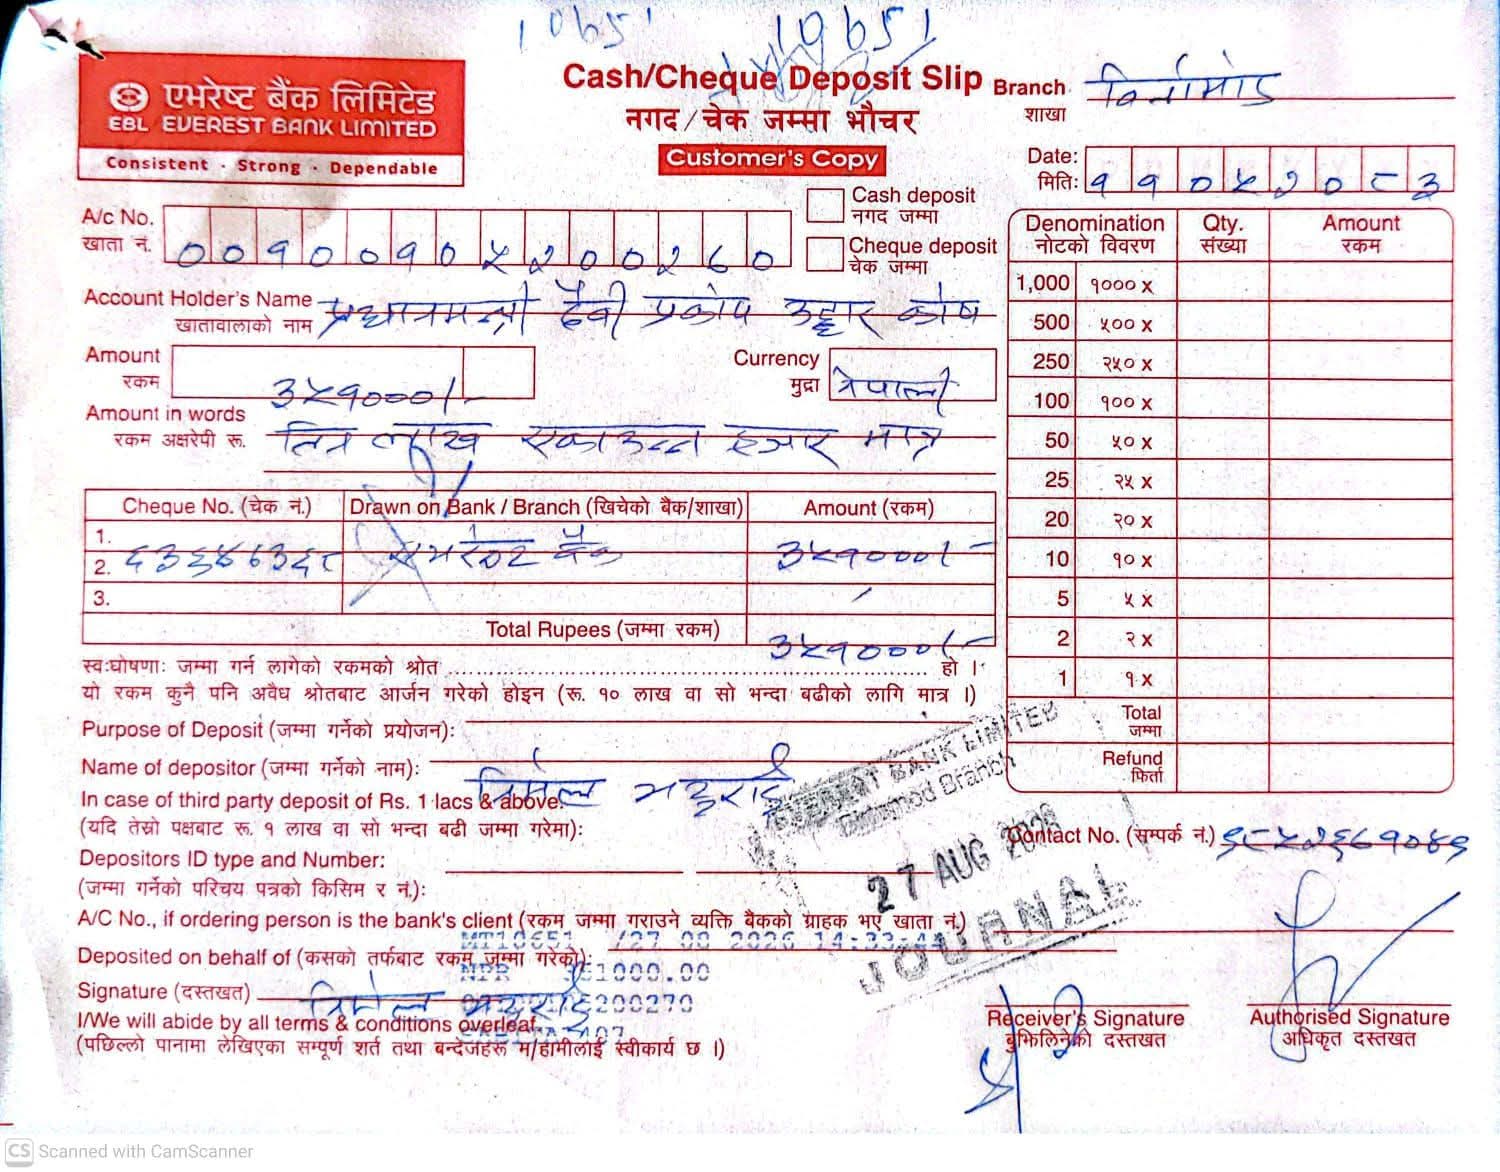 10651 10651
एभरेष्ट बैंक लिमिटेड
EBL EVEREST BANK LIMITED
Consistent · Strong · Dependable
Cash/Cheque Deposit Slip
नगद/चेक जम्मा भौचर
Customer's Copy
Branch शाखा विर्तामोड
Date: मिति: ११०५२०८३
Cash deposit
नगद जम्मा
Cheque deposit
चेक जम्मा
A/c No.
खाता नं. ००१००१०५२००२६०
Account Holder's Name
खातावालाको नाम प्रधानमन्त्री दैवी प्रकोप उद्धार कोष
Amount
रकम ३५१०००/-
Currency
मुद्रा नेपाली
Amount in words
रकम अक्षरेपी रू. तिन लाख एकाउन्न हजार मात्र
Cheque No. (चेक नं.) Drawn on Bank / Branch (खिचेको बैंक/शाखा) Amount (रकम)
1.
2. एभरेष्ट बैंक ३५१०००/-
3.
Total Rupees (जम्मा रकम) ३५१०००/-
स्व:घोषणा: जम्मा गर्न लागेको रकमको श्रोत ........ हो ।
यो रकम कुनै पनि अवैध श्रोतबाट आर्जन गरेको होइन (रू. १० लाख वा सो भन्दा बढीको लागि मात्र ।)
Purpose of Deposit (जम्मा गर्नेको प्रयोजन):
Name of depositor (जम्मा गर्नेको नाम): निर्मल भट्टराई
In case of third party deposit of Rs. 1 lacs & above:
(यदि तेस्रो पक्षबाट रू. १ लाख वा सो भन्दा बढी जम्मा गरेमा):
Depositors ID type and Number:
(जम्मा गर्नेको परिचय पत्रको किसिम र नं.):
A/C No., if ordering person is the bank's client (रकम जम्मा गराउने व्यक्ति बैंकको ग्राहक भए खाता नं.)
Deposited on behalf of (कसको तर्फबाट रकम जम्मा गरेको):
Signature (दस्तखत) निर्मल भट्टराई
I/We will abide by all terms & conditions overleaf.
(पछिल्लो पानामा लेखिएका सम्पूर्ण शर्त तथा बन्देजहरू म/हामीलाई स्वीकार्य छ ।)
MT10651 /27 08 2026 14:33:44
NPR 351000.00
Denomination Qty. Amount
नोटको विवरण संख्या रकम
1,000 १००० x
500 ५०० x
250 २५० x
100 १०० x
50 ५० x
25 २५ x
20 २० x
10 १० x
5 ५ x
2 २ x
1 १ x
Total
जम्मा
Refund
फिर्ता
EVEREST BANK LIMITED
Birtamod Branch
27 AUG 2026
JOURNAL
Contact No. (सम्पर्क नं.) ९८५२६७१०४९
Receiver's Signature
बुझिलिनेको दस्तखत
Authorised Signature
अधिकृत दस्तखत
CS Scanned with CamScanner